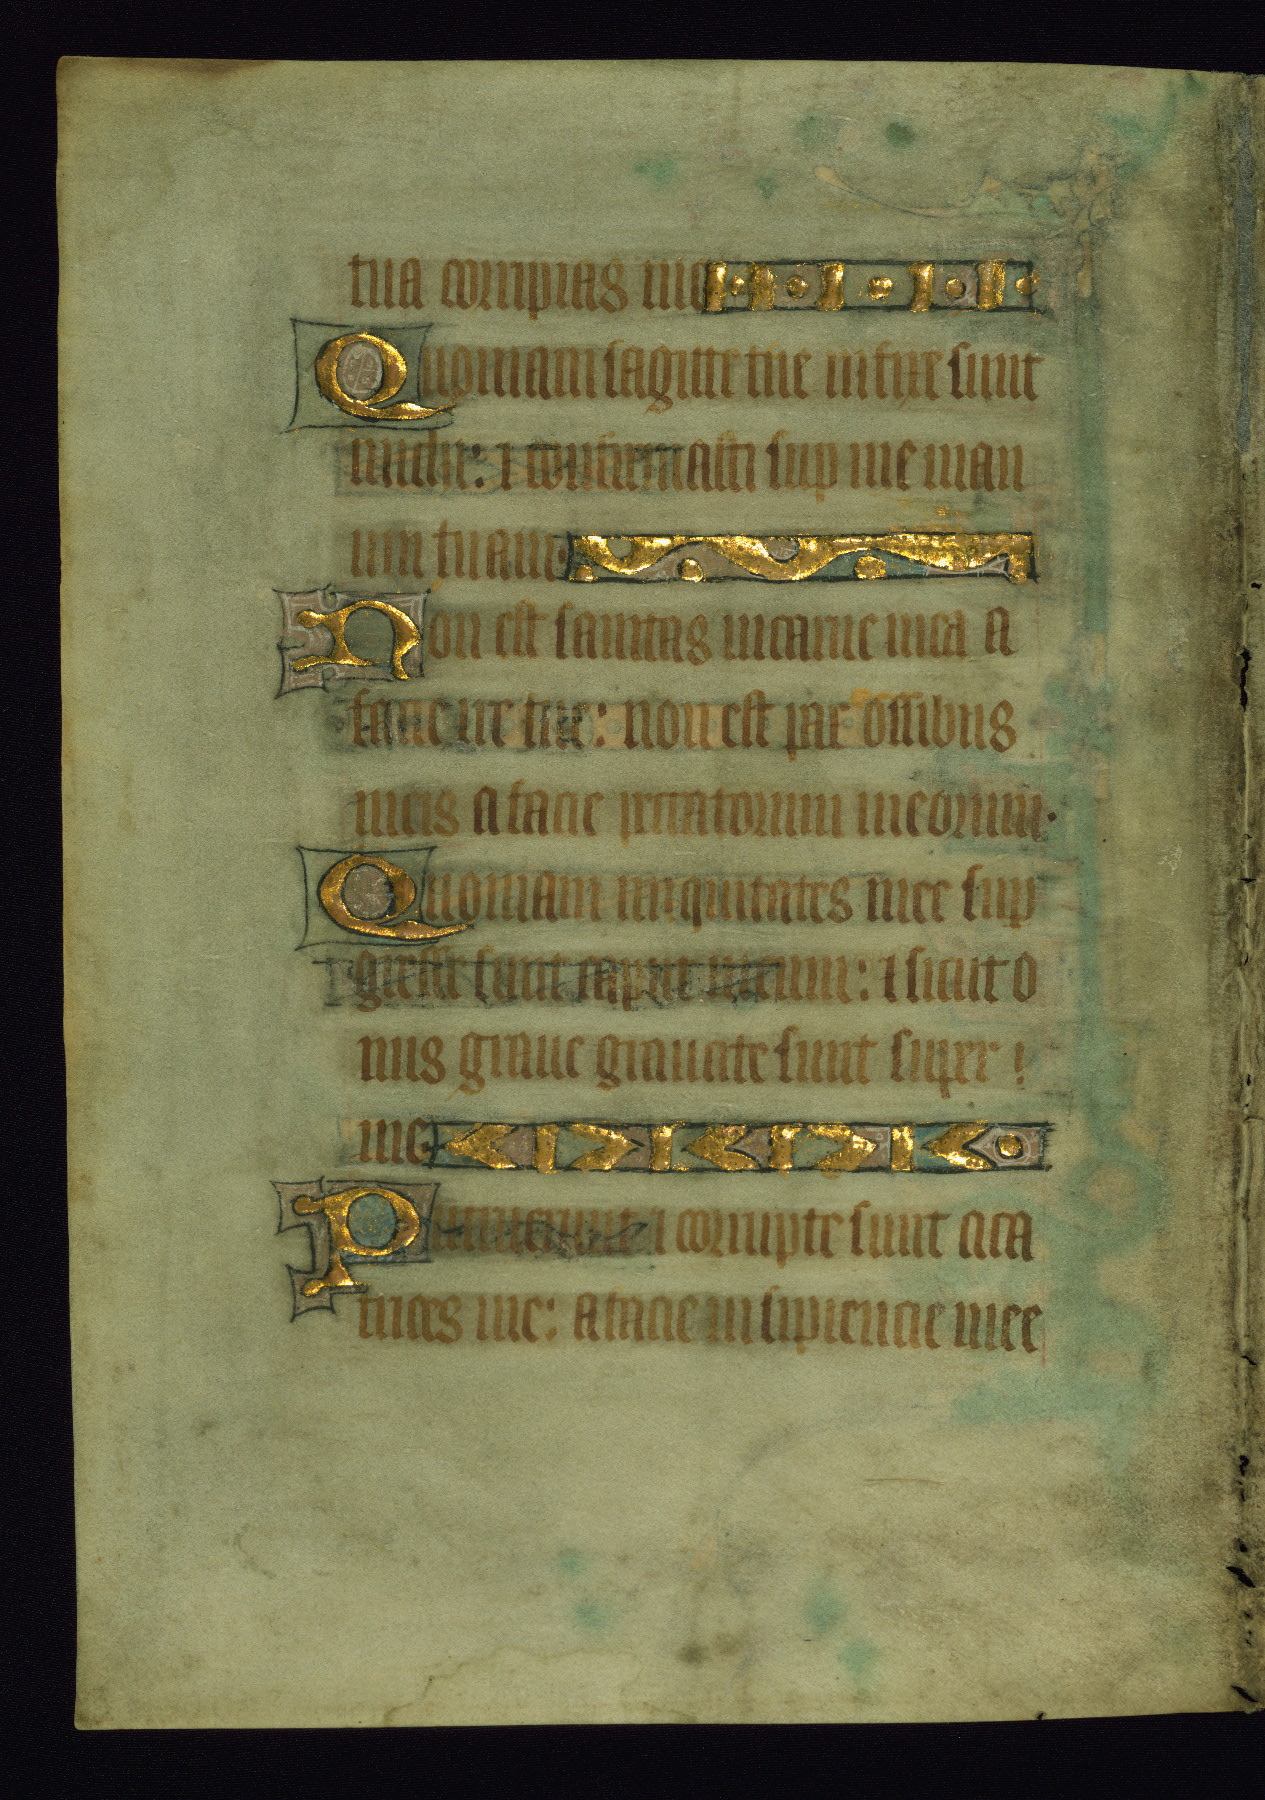 tua corripias me
Quoniam sagitte tue infixe sunt
michi: ⁊ confirmasti sup me man
um tuam.
Non est sanitas in carne mea a
facie ire tue: non est pax ossibus
meis a facie peccatorum meorum.
Quoniam iniquitates mee sup
gresse sunt caput meum: ⁊ sicut o
nus graue grauate sunt super !
me.
Putruerunt ⁊ corrupte sunt cica
trices me: a facie insipiencie mee